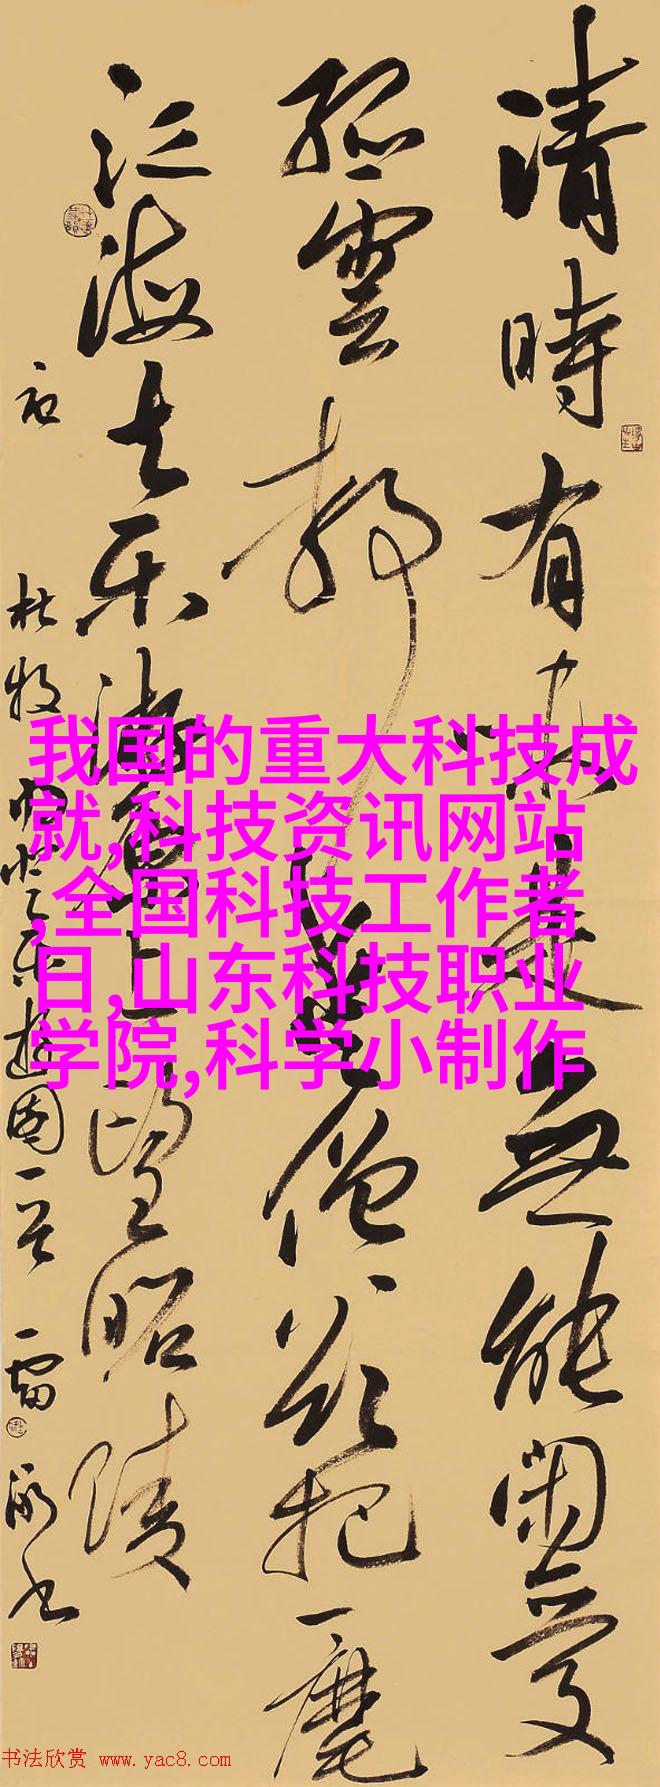 清時有味是無能閑愛
孤雲静愛僧欲把一麾
江海去乐游原上望昭陵
杜牧 登乐遊園一首 雷 书
我国的重大科技成
就,科技资讯网站
,全国科技工作者
日,山东科技职业
学院,科学小制作
书法欣赏 www.yac8.com